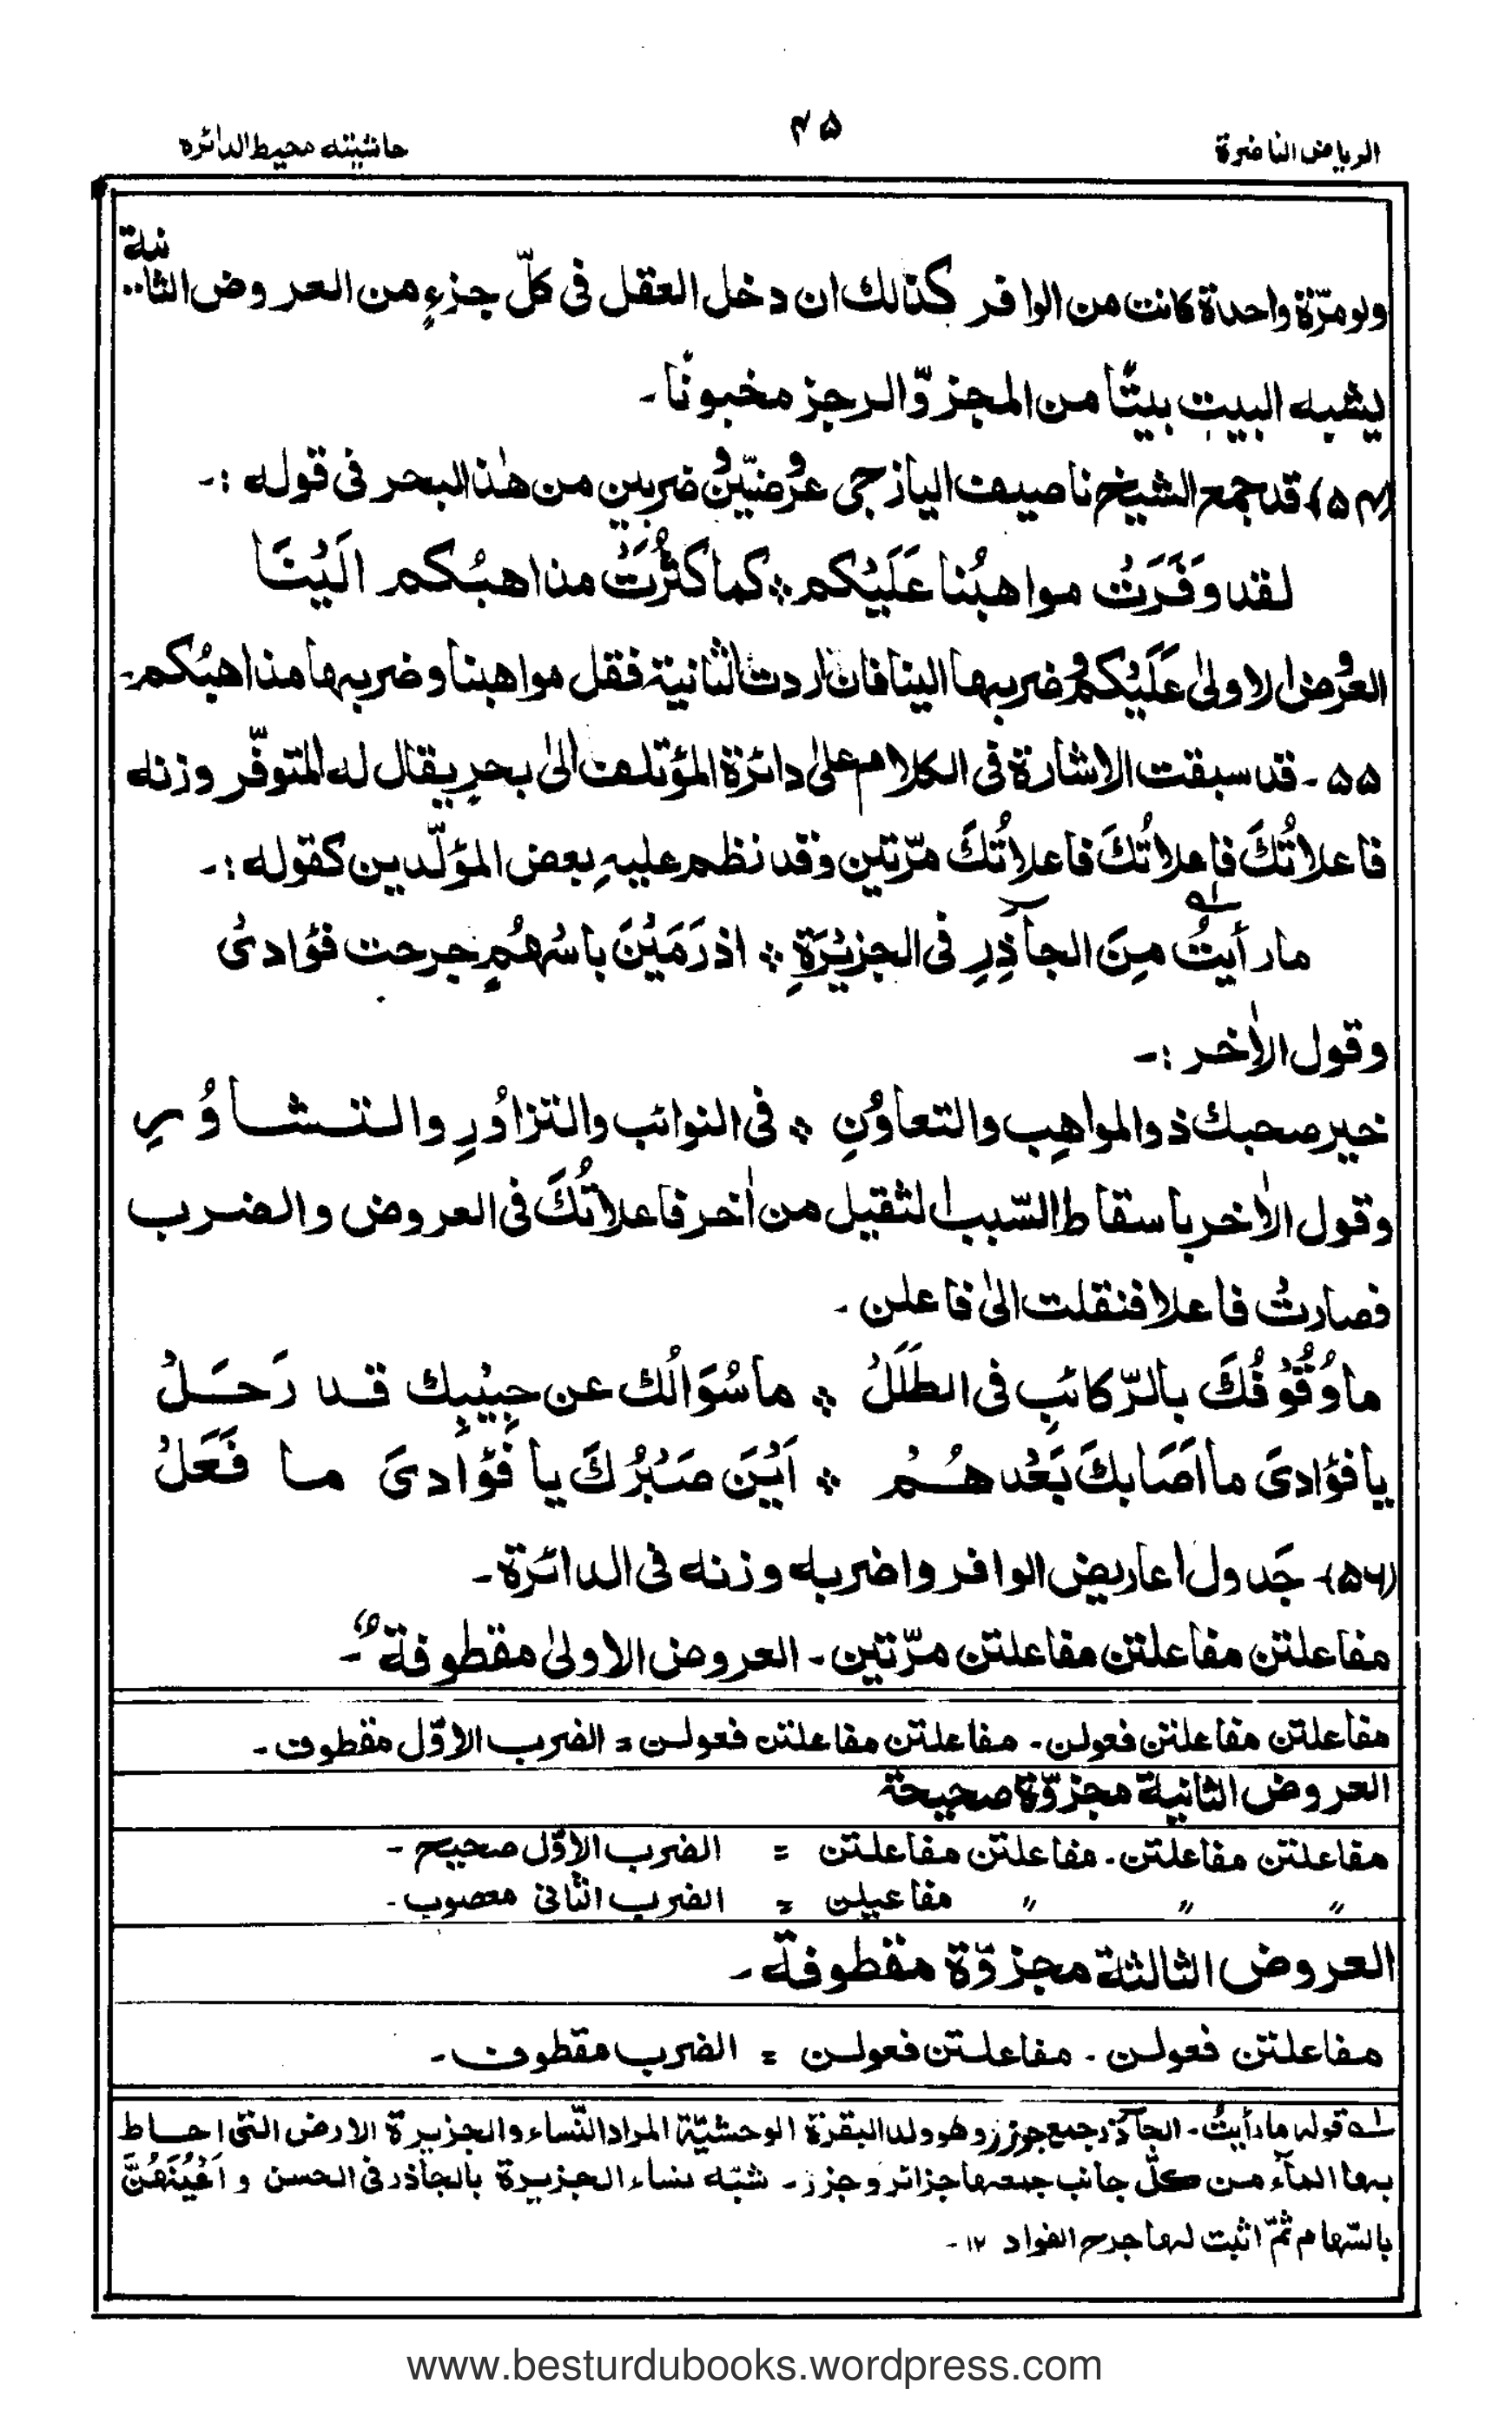 الرياض الناضرة
۴۵
حاشيته محيط الدائره
ولو مرّة واحدة كانت من الوافر كذالك ان دخل العقل فى كلّ جزءٍ من العروض الثانية
يشبه البيت بيتًا من المجزوّ الرجز مخبونًا۔
(۵۴) قد جمع الشيخ ناصيف اليازجى عرُوضَيْن وضربين من هٰذا البحر فى قوله :۔
لقد وَفَرَتْ مواهبُنا عَلَيْكم * كما كثُرَتْ مذاهبُكم اِلَيْنَا
العرُوض الاولىٰ عَلَيْكُمْ وضربها الينا فان اردت الثانية فقل مواهبنا وضربها مذاهبُكم۔
۵۵۔ قد سبقت الاشارة فى الكلام علىٰ دائرة المؤتلف الىٰ بحرٍ يقال له المتوفّر وزنه
فاعلاتُكَ فاعلاتُكَ فاعلاتُكَ مرّتين وقد نظم عليهِ بعض المؤلّدين كقوله :۔
مارأيتُ مِنَ الجآذِرِ فى الجزيْرَةِ * اذرَمَيْنَ باسْهُمٍ جرحت فؤادىْ
وقول الاٰخر :۔
خير صحبك ذو المواهِب والتعاوُنِ * فى النوائب والتزاوُرِ والتشاوُرِ
وقول الاٰخر باسقاط السّبب الثقيل من اٰخر فاعلاتُكَ فى العروض والضرب
فصارتْ فاعلا فنقلت الىٰ فاعلن۔
ماوُقُوْفُكَ بالرّكائبِ فى الطَلَلْ * ماسُوَالُك عن حبِيْبِك قد رَحَلْ
يا فؤادىَ ما اَصَابكَ بَعْدهُمْ * اَيْنَ صَبْرُكَ يا فؤادىَ ما فَعَلْ
(۵۶) جَدول اعاريض الوافر واضربه وزنه فى الدائرة۔
مفاعلتن مفاعلتن مفاعلتن مرّتين۔ العروض الاولىٰ مقطوفة۔
مفاعلتن مفاعلتن فعولن۔ مفاعلتن مفاعلتن فعولن = الضرب الاوّل مقطوف۔
العروض الثانية مجزوّة صحيحة
مفاعلتن مفاعلتن۔ مفاعلتن مفاعلتن = الضرب الاوّل صحيح۔
〃 〃 〃 مفاعيلن = الضرب الثانى معصوب۔
العروض الثالثة مجزوّة مقطوفة۔
مفاعلتن فعولن۔ مفاعلتن فعولن = الضرب مقطوف۔
لـه قوله مارأيتُ۔ الجآذر جمع جوزر وهو ولد البقرة الوحشيّة المراد النّساء والجزيرة الارض التى احاط
بها المآء من كلّ جانب جمعها جزائر وجزر۔ شبّه نساء الجزيرة بالجآذر فى الحسن و اَعْيُنَهُنَّ
بالسّهام ثمّ اثبت لها جرح الفواد ۱۲۔
www.besturdubooks.wordpress.com